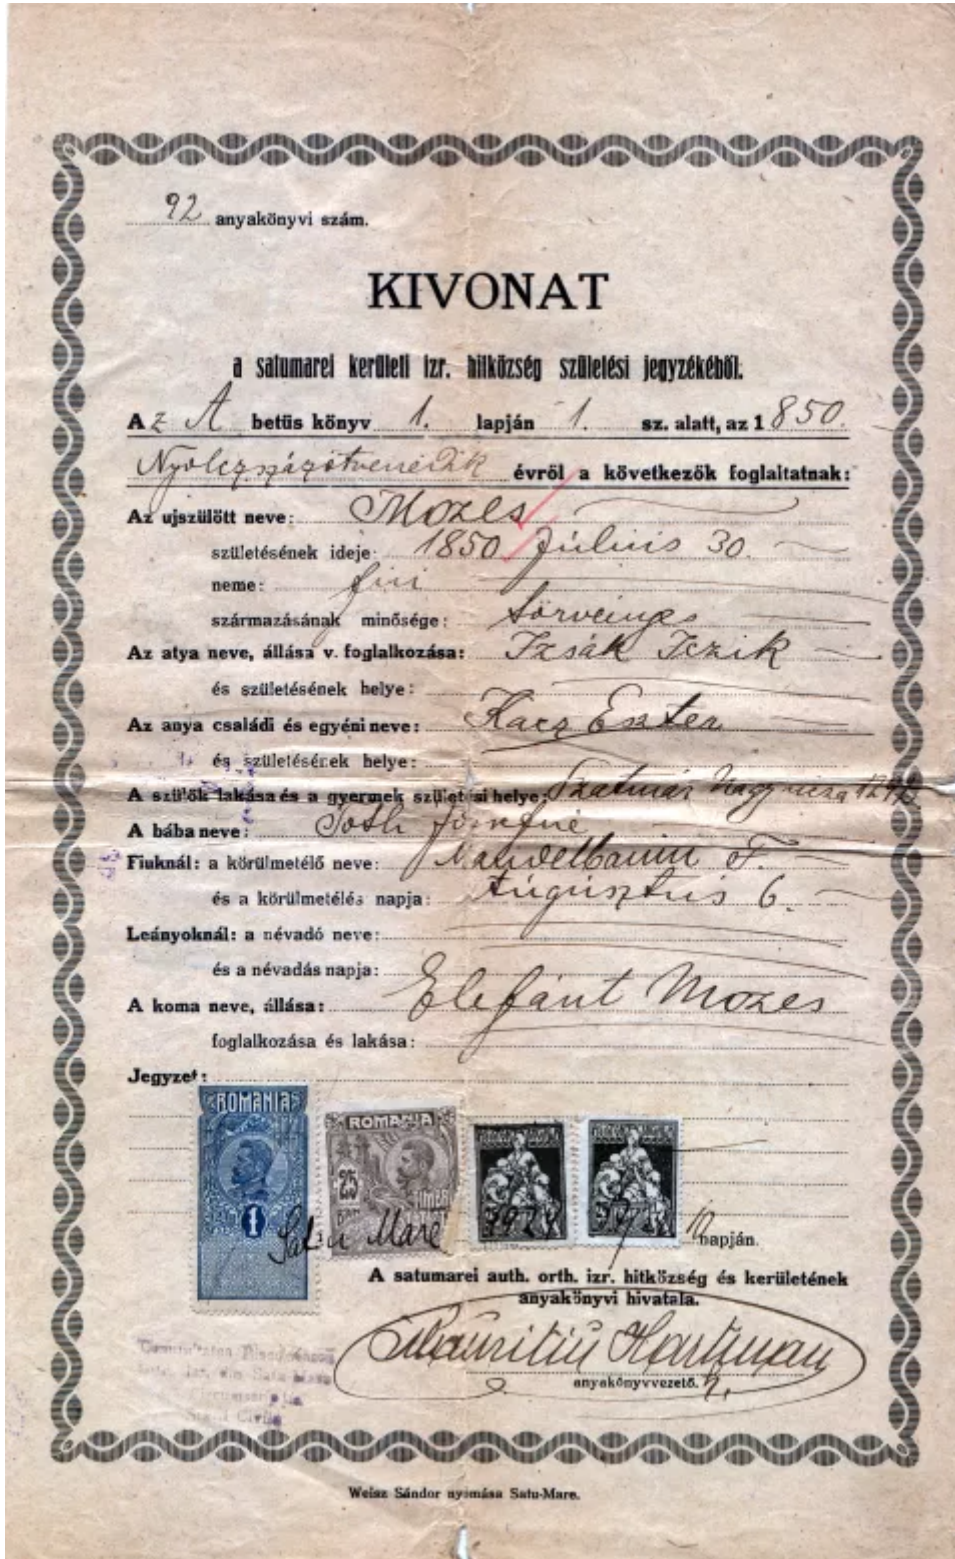 92 anyakönyvi szám.
KIVONAT
a satumarei kerületi izr. hitközség születési jegyzékéből.
Az A betüs könyv 1. lapján 1. sz. alatt, az 1850.
évről a következők foglaltatnak:
Az ujszülött neve: Mozes
születésének ideje: 1850 Július 30.
neme: fiú
származásának minősége: törvényes
Az atya neve, állása v. foglalkozása: Izsák Iczik
és születésének helye:
Az anya családi és egyéni neve: Kacz Eszter
és születésének helye:
A szülők lakása és a gyermek születési helye: Szatmár Nagy utcza
A bába neve: Toth Józsefné
Fiuknál: a körülmetélő neve: Mandelbaum F.
és a körülmetélés napja: Augusztus 6.
Leányoknál: a névadó neve:
és a névadás napja:
A koma neve, állása: Elefánt Mozes
foglalkozása és lakása:
Jegyzet:
ROMANIA
1
ROMANIA
25
BANI
TIMBRU
Satu Mare 10 napján.
A satumarei auth. orth. izr. hitközség és kerületének
anyakönyvi hivatala.
Mauritiu Hartman
anyakönyvvezető.
Weisz Sándor nyomása Satu-Mare.